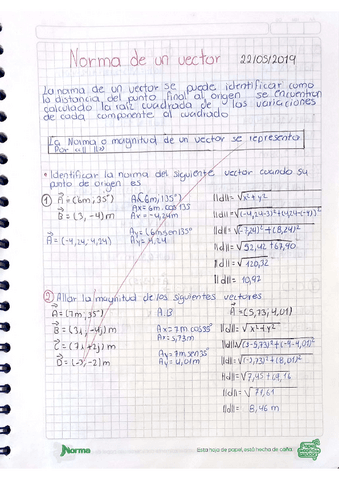 Norma de un vector 22/05/2019
La norma de un vector se puede identificar como
la distancia del punto final al origen se encuentran
calculado la raíz cuadrada de las variaciones
de cada componente al cuadrado
La Norma o magnitud de un vector se representa
Por || ||.
• Identificar la norma del siguiente vector cuando su
punto de origen es
① A = (6m, 135°) A(6m, 135°) ||d|| = √x²+y²
B = (3, -4) m Ax = 6m. cos 135
Ax = -4,24m ||d|| = √(-4,24-3)²+(4,24-(-4))²
Ay = (6m sen 135° ||d|| = √(-7,24)² + (8,24)²
A = (-4,24, 4,24) Ay = 4,24 ||d|| = √52,42 + 67,90
||d|| = √120,32
||d|| = 10,97
② Allar la magnitud de los siguientes vectores
A = (7m, 35°) A,B A = (5,73, 4,01)
B = (3i, -4j) m Ax = 7m cos 35° ||d|| = √x²+y²
C = (7i + 2j) m Ax = 5,73m ||d|| √(3-5,73)² + (-4-4,01)²
D = (-3, -2) m Ay = 7m. sen 35° ||d|| = √(-2,73)² + (8,01)²
Ay = 4,01m ||d|| = √7,45 + 64,16
||d|| = √71,61
||d|| = 8,46 m
Norma
Esta hoja de papel, está hecha de caña